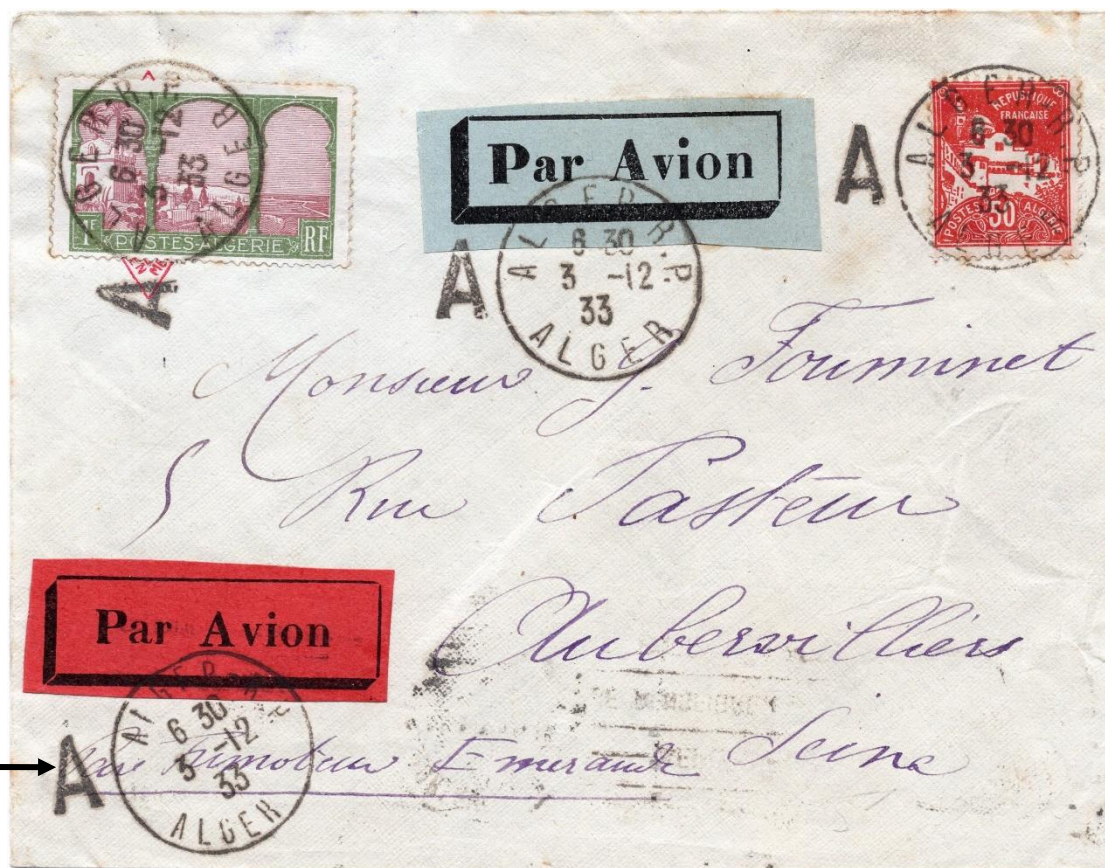 ALGER-R.P
6 30
3 -12
33
ALGER
1F POSTES-ALGERIE RF
A
Par Avion
A
ALGER-R.P
6 30
3 -12
33
ALGER
A
ALGER-R.P
6 30
3 -12
33
ALGER
REPUBLIQUE
FRANCAISE
POSTES 50 ALGERIE
Monsieur J. Fouminet
5 Rue Pasteur
Aubervilliers
Seine
Par Avion
ALGER-R.P
6 30
3 -12
33
ALGER
A
Par Trimoteur Emeraude